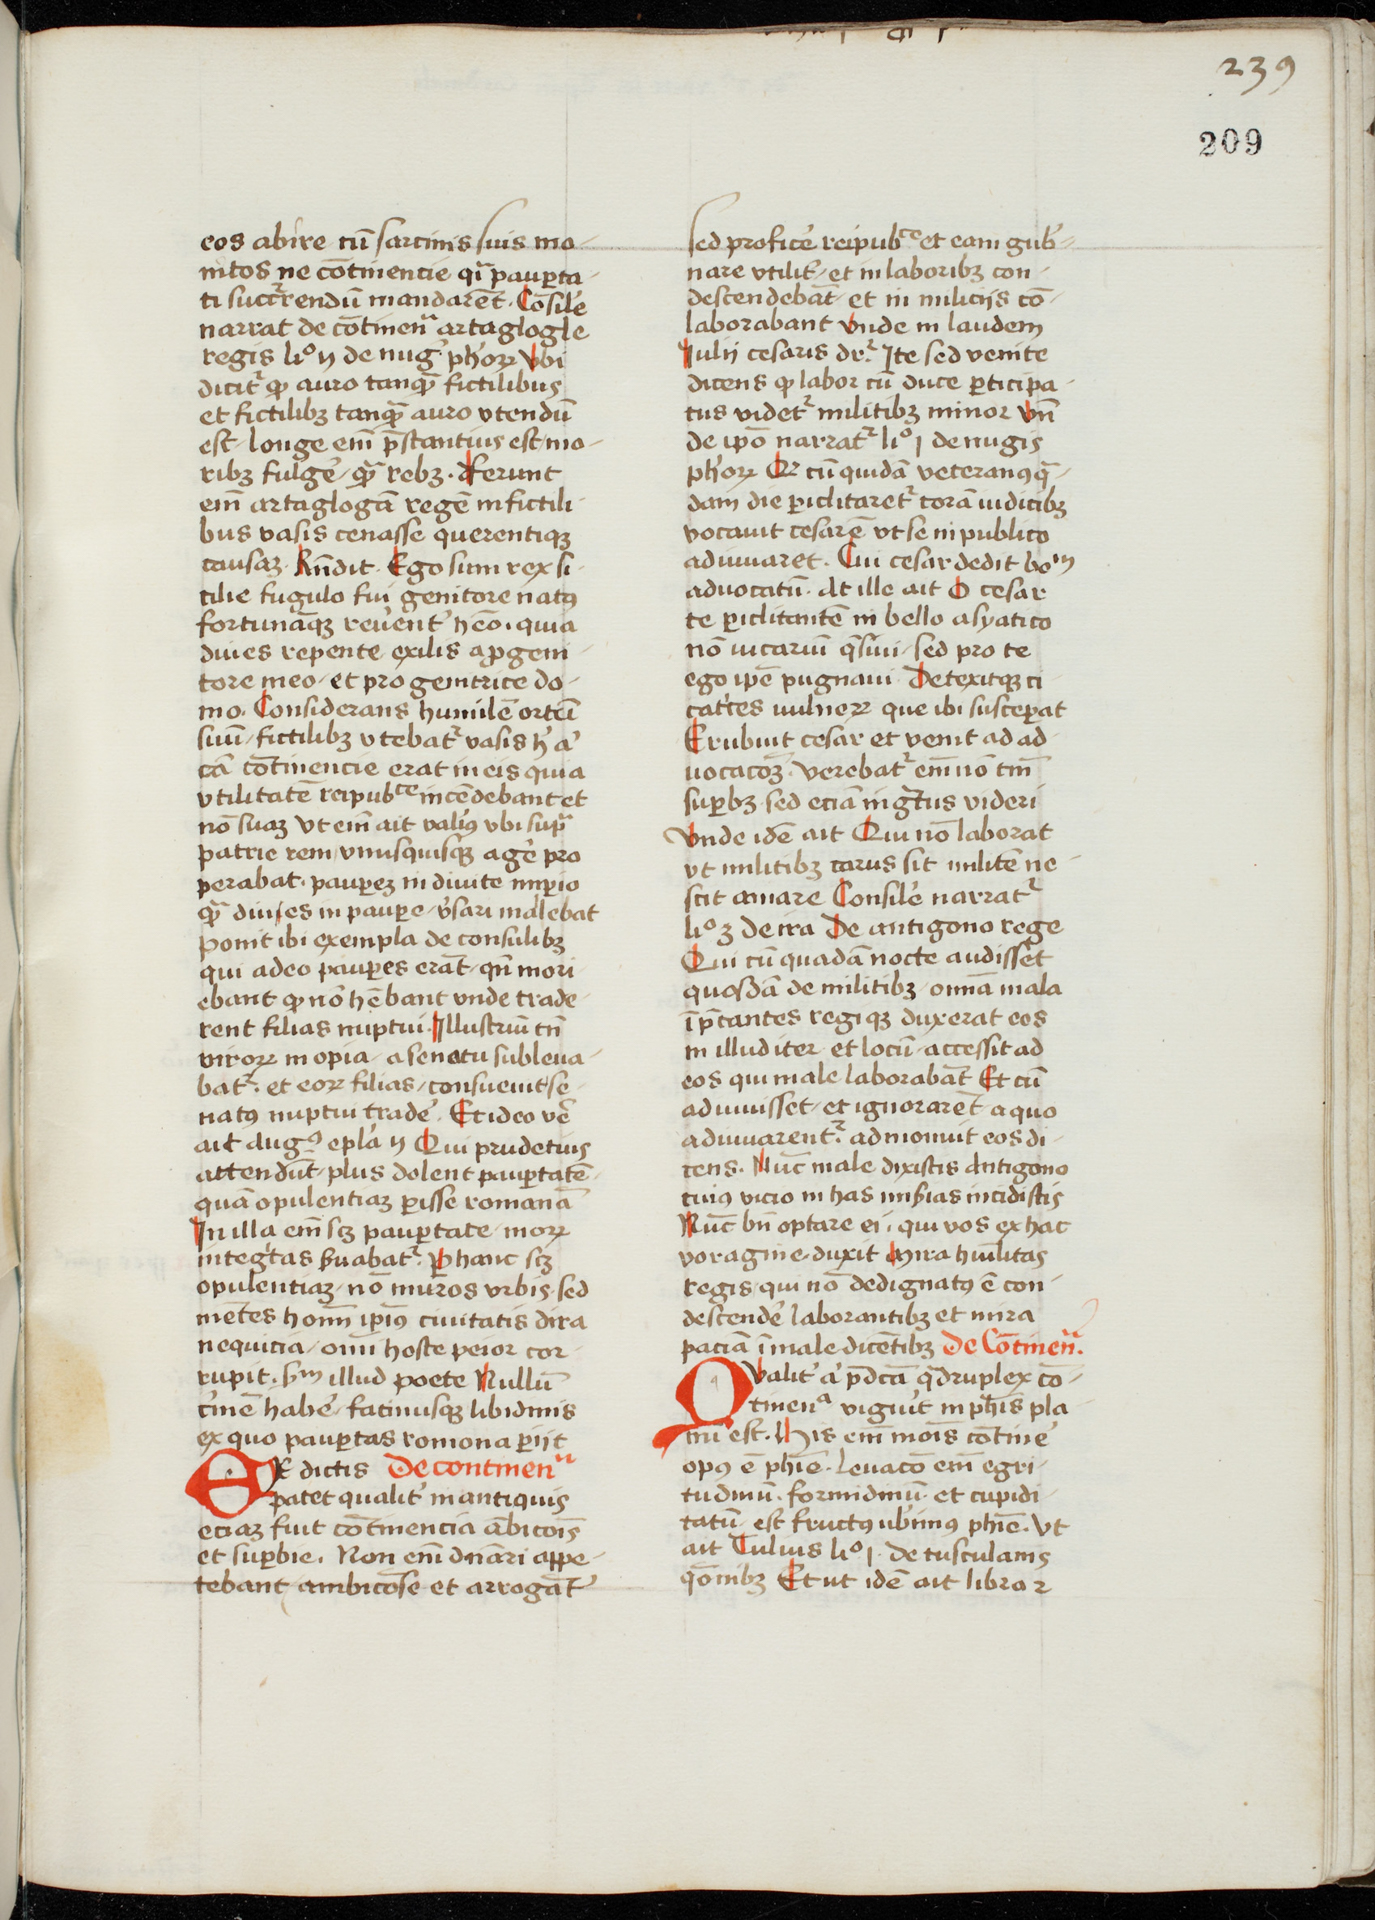 239
209
eos abire cū sarcinis suis mo-
nitos ne cōtinencie qͣ paupta-
ti succͬrendū mandarēt. Cōsile᷑
narrat de cōtinenͣ artaglogle
regis liº ij de nug᷑ phorꝝ vbi
dicitͬ ꝙ auro tanqͣ̄ fictilibus
et fictilibꝫ tanqͣ̄ auro vtendū
est. longe em̄ p̄stantius est mo-
ribꝫ fulge᷑ qͣ̄ rebꝫ. ferunt
em̄ artaglogā regē in fictili
bus vasis cenasse querentiqꝫ
causaꝫ. Rn̄dit. Ego sum rex si-
cilie fugulo fui genitore natꝰ
fortunāqꝫ reue᷑ent᷑ hēo. quia
diues repente exilis a p̱geni-
tore meo. et pro genitrice do-
mo. Considerans humilē ortū
suū. fictilibꝫ vtebatͬ vasis h᷑ a᷑
cā cōtinencie erat in eis quia
vtilitatē reipubᶜᵉ incēdebant et
nō suaꝫ vt em̄ ait valiꝰ vbi supͣ
patrie rem vnusquisqꝫ age᷑ pro
perabat. paupeꝫ in diuite imꝑio
qͣ̄ diuies in paupe v᷑sari malebat
ponit ibi exempla de consulibꝫ
qui adeo paupes erāt. qn̄ mori-
ebant ꝙ nō hēbant vnde trade-
rent filias nuptui. Illustriū tn̄
virorꝝ inopia. a senatu subleua-
batͬ. et eorꝝ filias. consueuit se-
natꝰ nuptui trade᷑. Et ideo ve᷑
ait Augꝰ epl᷑a ij Qui prudetius
attendūt. plus dolent pauptatē.
quā opulentiaꝫ ꝑisse romanā
In illa em̄ scꝫ pauptate. morꝝ
integͬtas s᷑uabatͬ. Ꝑ hanc scꝫ
opulentiaꝫ. nō muros vrbis. sed
mētes hoīm ipīꝰ ciuitatis dira
nequicia. omī hoste peior cor-
rupit. sᵐ illud poete Nullū
c᷑mē habe᷑. facinusqꝫ libidinis
ex quo pauptas romona ꝑijt
Ex dictis De continenͣ
patet qualit᷑ in antiquis
eciaꝫ fuit cōtinencia ābicōis
et supbie. Non em̄ dn̄ari appe-
tebant ambicōse et arrogāt᷑
sed profice᷑ reipubᶜᵉ et eam gub᷑-
nare vtilit᷑. et in laboribꝫ con-
descendebāt. et in miliciis cō-
laborabant vnde in laudem
Iulij cesaris drͬ. Ite sed venite
dicens ꝙ labor cū duce ꝑticipa-
tus videtͬ militibꝫ minor vn̄
de ip̄o narratͬ liº j de nugis
phorꝝ Qꝛ cū quidā veteranꝰ qͣ-
dam die ꝑiclitaretͬ corā iudicibꝫ
vocauit cesarē vt se in publico
adiuuaret. Cui cesar dedit boᵐ
aduocatū. At ille ait O cesar
te ꝑiclitantē in bello asyatico
nō vicariū qͣsiui. sed pro te
ego ipe᷑ pugnaui. Detexitqꝫ ci-
catͬces vulnerꝝ que ibi suscepat
Erubuit cesar et venit ad ad-
uocacōꝫ. verebatͬ em̄ nō tm̄
supbꝫ. sed eciā ingͬtus videri
vnde idē ait Qui nō laborat
vt militibꝫ carus sit militē ne-
scit amare Consile᷑ narratͬ
liº 3 de ira De antigono rege
Qui cū quadā nocte audisset
quosdā de militibꝫ. omīa mala
īp̄cantes regi qꝫ duxerat eos
in illud iter. et locū. accessit ad
eos qui male laborabāt Et cū
adiuuisset. et ignorarēt. a quo
adiuuarentͬ. admonuit eos di-
cens. Nūc male dixistis Antigono
cuiꝰ vicio in has mis᷑ias incidistis
Nūc bn̄ optare ei. qui vos ex hac
voragine. duxit mira huīlitas
regis. qui nō dedignatꝰ ē con-
descende᷑ laborantibꝫ et mira
paciā ī male dicētibꝫ De Cōtinenͣ.
Qvalit᷑ a᷑ p̄dcā qͣdruplex cō-
tinenͣ viguit in ph̄is pla-
nū est. His em̄ mōis cōtine᷑
opꝰ ē ph̄ie. leuacō em̄ egri-
tudinū. formidinū. et cupidi-
tatū. est fructꝰ vb᷑rimꝰ ph̄ie. Vt
ait Tulius liº j. de tusculanis
qōnibꝫ Et ut idē ait libro 2